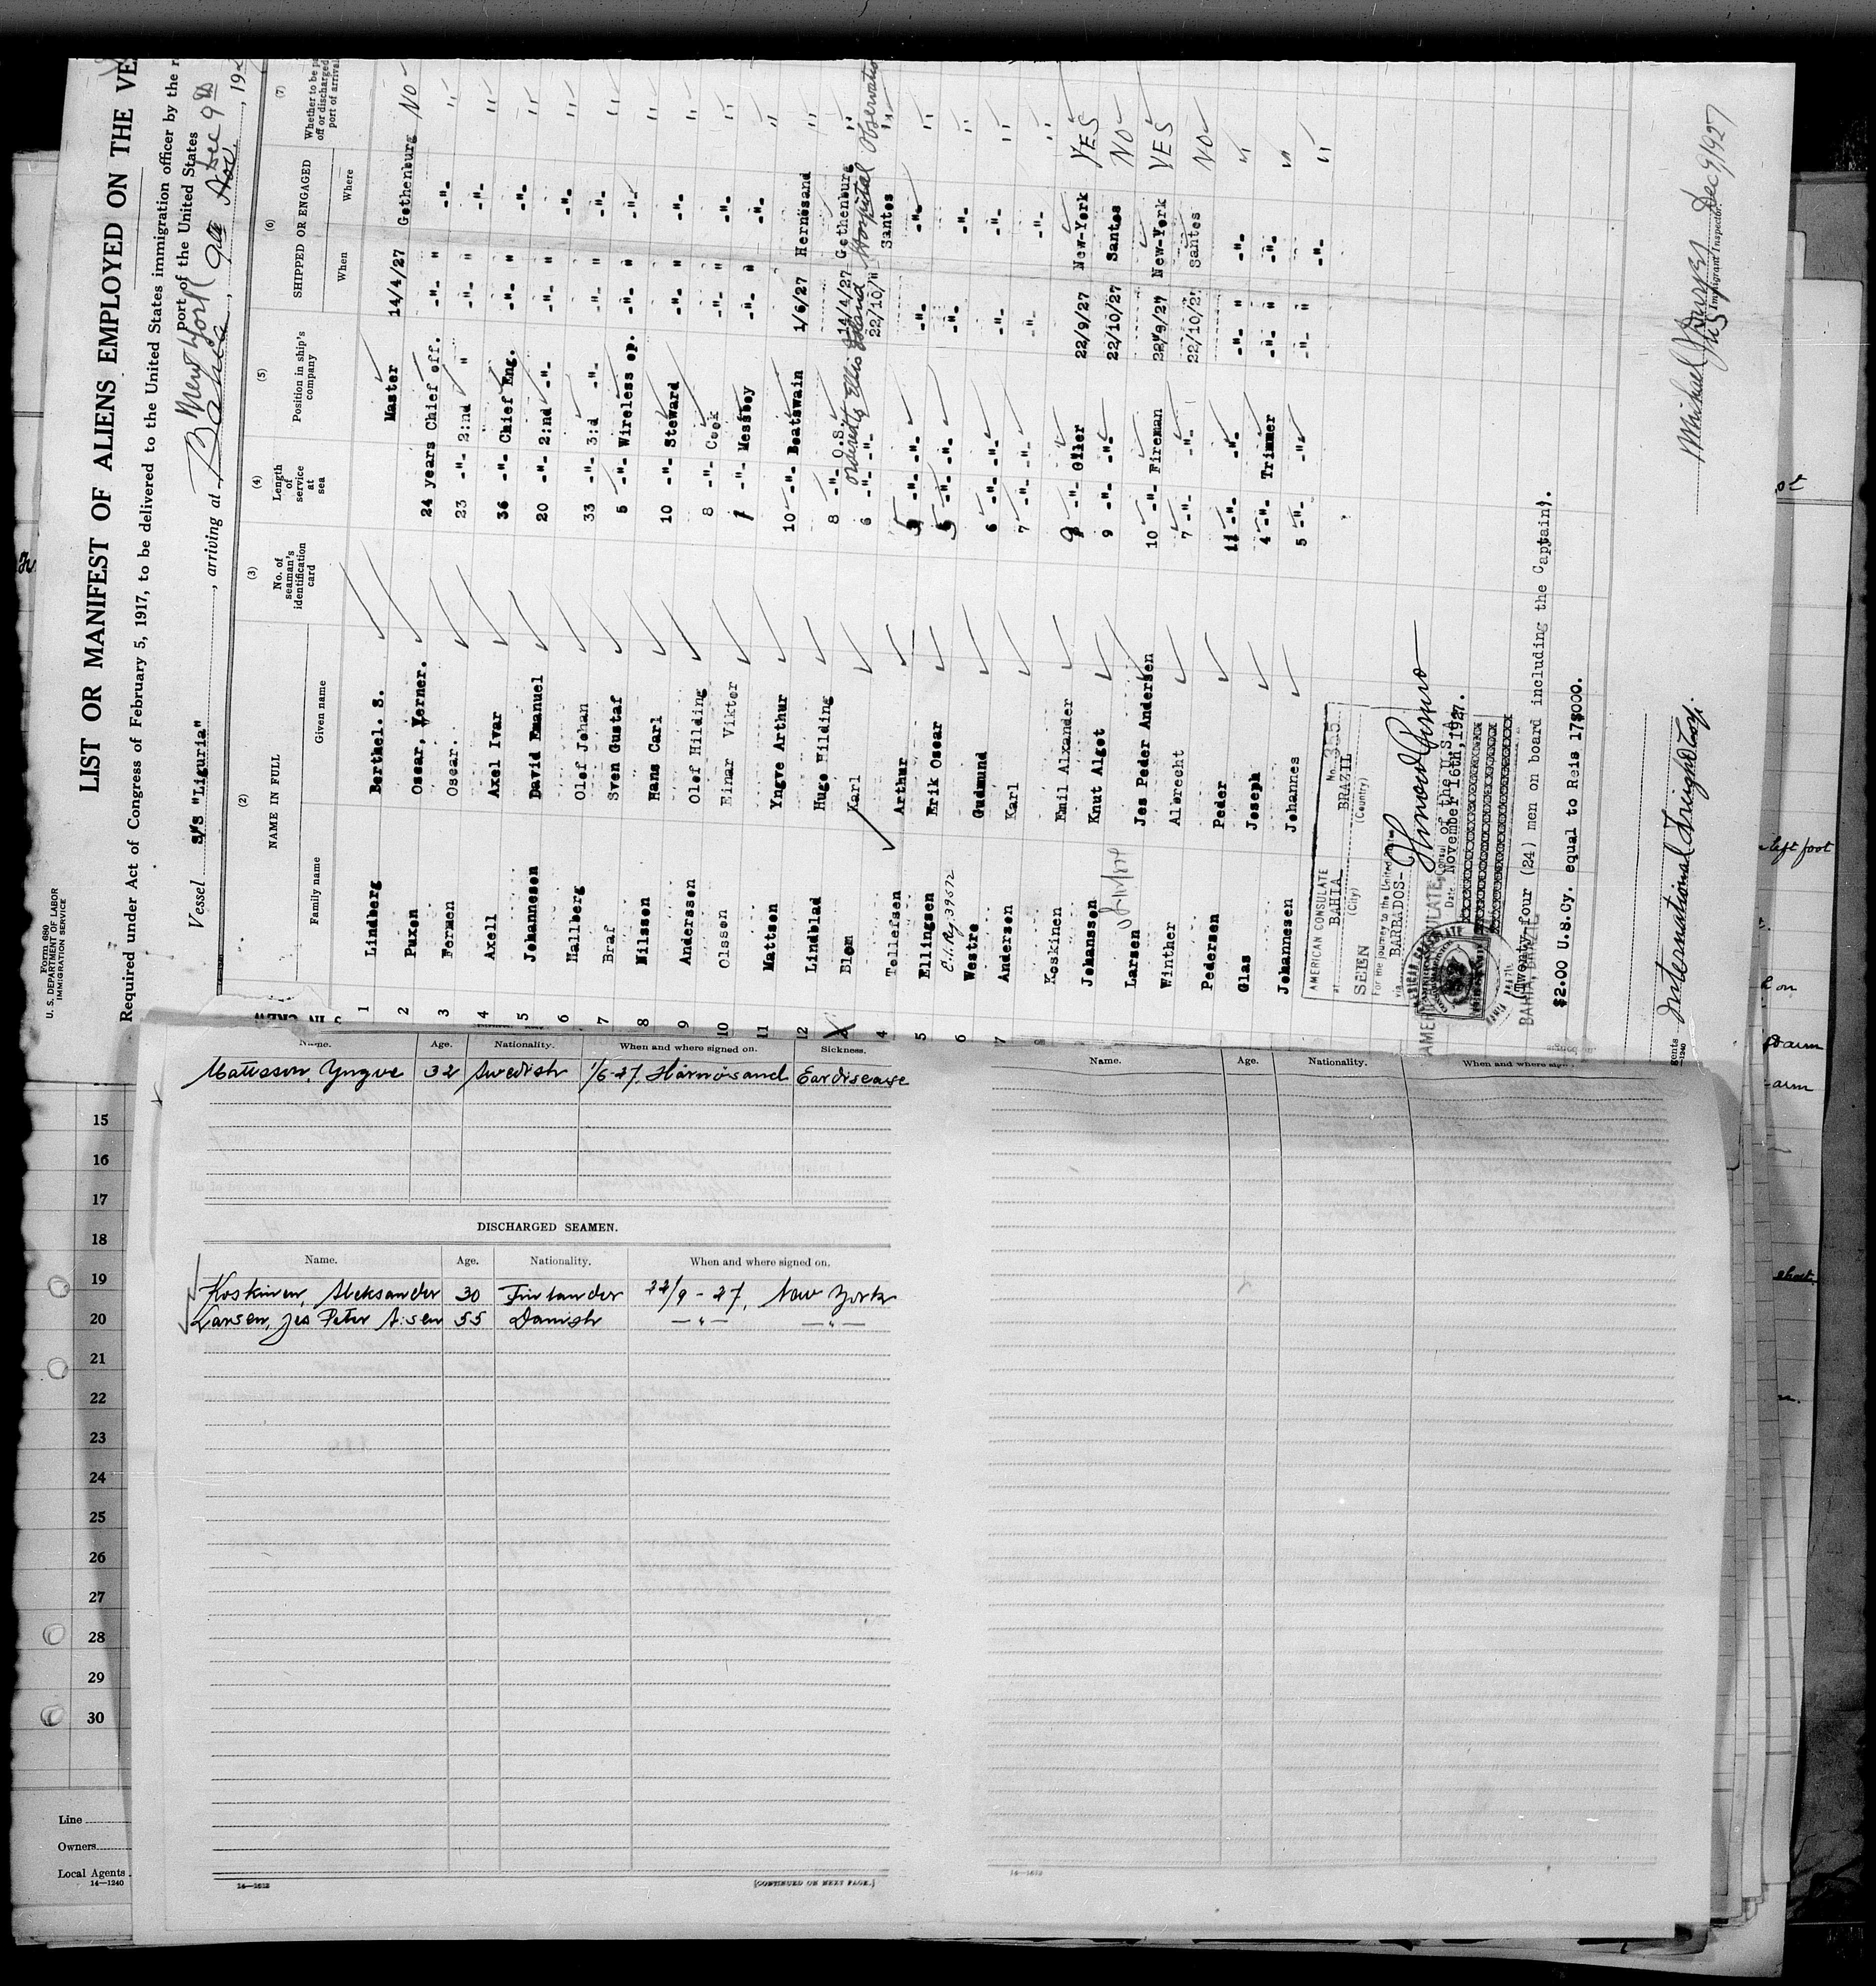 Form 680
U. S. DEPARTMENT OF LABOR
IMMIGRATION SERVICE
LIST OR MANIFEST OF ALIENS EMPLOYED ON THE VE
Required under Act of Congress of February 5, 1917, to be delivered to the United States immigration officer by the r
port of the United States
New York Dec 9th
Vessel S/S "Liguria" , arriving at Bahia , 9th Nov. , 192
(2) (3) (4) (5) (6) (7)
NAME IN FULL
No. of seaman's identification card
Length of service at sea
Position in ship's company
SHIPPED OR ENGAGED
Whether to be p off or discharged port of arrival
Family name Given name When Where
1 Lindberg Berthel. S. Master 14/4/27 Gothenburg NO -
2 Puxen Oscar, Verner. 24 years Chief off. -"- " -"- "
3 Fermen Oscar. 23 -"- 2:nd " -"- " -"- "
4 Axell Axel Ivar 36 -"- Chief Eng. -"- " -"- "
5 Johannesen David Emanuel 20 -"- 2:nd -"- -"- " -"- "
6 Hallberg Olof Johan 33 -"- 3:d -"- -"- " -"- "
7 Braf Sven Gustaf 5 -"- Wireless op. -"- " -"- "
8 Nilsson Hans Carl 10 -"- Steward -"- " -"- "
9 Andersson Olof Hilding 8 -"- Cook -"- " -"- "
10 Olsson Einar Viktor 1 -"- Messboy -"- " -"- "
11 Mattson Yngve Arthur 10 -"- Boatswain 1/6/27 Hernösand "
12 Lindblad Hugo Hilding 8 -"- O.S. 14/4/27 Gothenburg "
ordered to Ellis Island Hospital Observation
Blom Karl 6 -"- -"- 22/10/" Santos "
4 Tollefsen Arthur -"- -"- -"- -"- "
5 Ellingsen Erik Oscar 5 -"- -"- -"- -"- "
C.N. Reg. 39672
6 Westre Gudmund 6 -"- -"- -"- -"- "
7 Andersen Karl 7 -"- -"- -"- -"- "
Koskinen Emil Alxander 9 -"- Oiler 22/9/27 New-York YES
Johansson Knut Algot 9 -"- -"- 22/10/27 Santos NO
Larsen Jes Peder Andersen 10 -"- Fireman 22/9/27 New-York YES
Winther Albrecht 7 -"- -"- 22/10/27 Santos NO
Pedersen Peder 11 -"- -"- -"- " -"- "
Glas Joseph 4 -"- Trimmer -"- " -"- "
Johannesen Johannes 5 -"- -"- -"- -"- "
AMERICAN CONSULATE No. 355
at BAHIA BRAZIL
(City) (Country)
SEEN
For the journey to the United States
via BARBADOS-
Consul of the U.S.A.
Date: November 16th, 1927.
AMERICAN CONSULATE
BAHIA, BRAZIL
(Twenty-four (24) men on board including the Captain).
$2.00 U.S.Cy. equal to Reis 17$000.
International Freight Corp.
Michael J
US Immigrant Inspector. Dec 9/1927
Name. Age. Nationality. When and where signed on. Sickness.
Mattsson, Yngve 32 Swedish 1/6-27, Härnösand Ear disease
DISCHARGED SEAMEN.
Name. Age. Nationality. When and where signed on.
Koskinen, Aleksander 30 Finlander 22/9 - 27, New York
Larsen, Jes Peter A:sen 55 Danish -"- -"-
14—1613 [CONTINUED ON NEXT PAGE.]
Name. Age. Nationality. When and where sign
14—1613
15
16
17
18
19
20
21
22
23
24
25
26
27
28
29
30
Line
Owners
Local Agents
14—1240
left foot
arm
arm